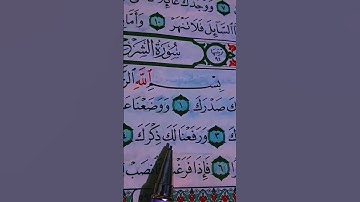 وَوَجَدَكَ عَآئِلًا
ٱلسَّآئِلَ فَلَا تَنْهَرْ ١٠ وَأَمَّا
سُورَةُ الشَّرْحِ
بِسْمِ ٱللَّهِ ٱلرَّ
صَدْرَكَ ١ وَوَضَعْنَا عَ
٣ وَرَفَعْنَا لَكَ ذِكْرَكَ ٤
٦ فَإِذَا فَرَغْتَ فَٱنصَبْ